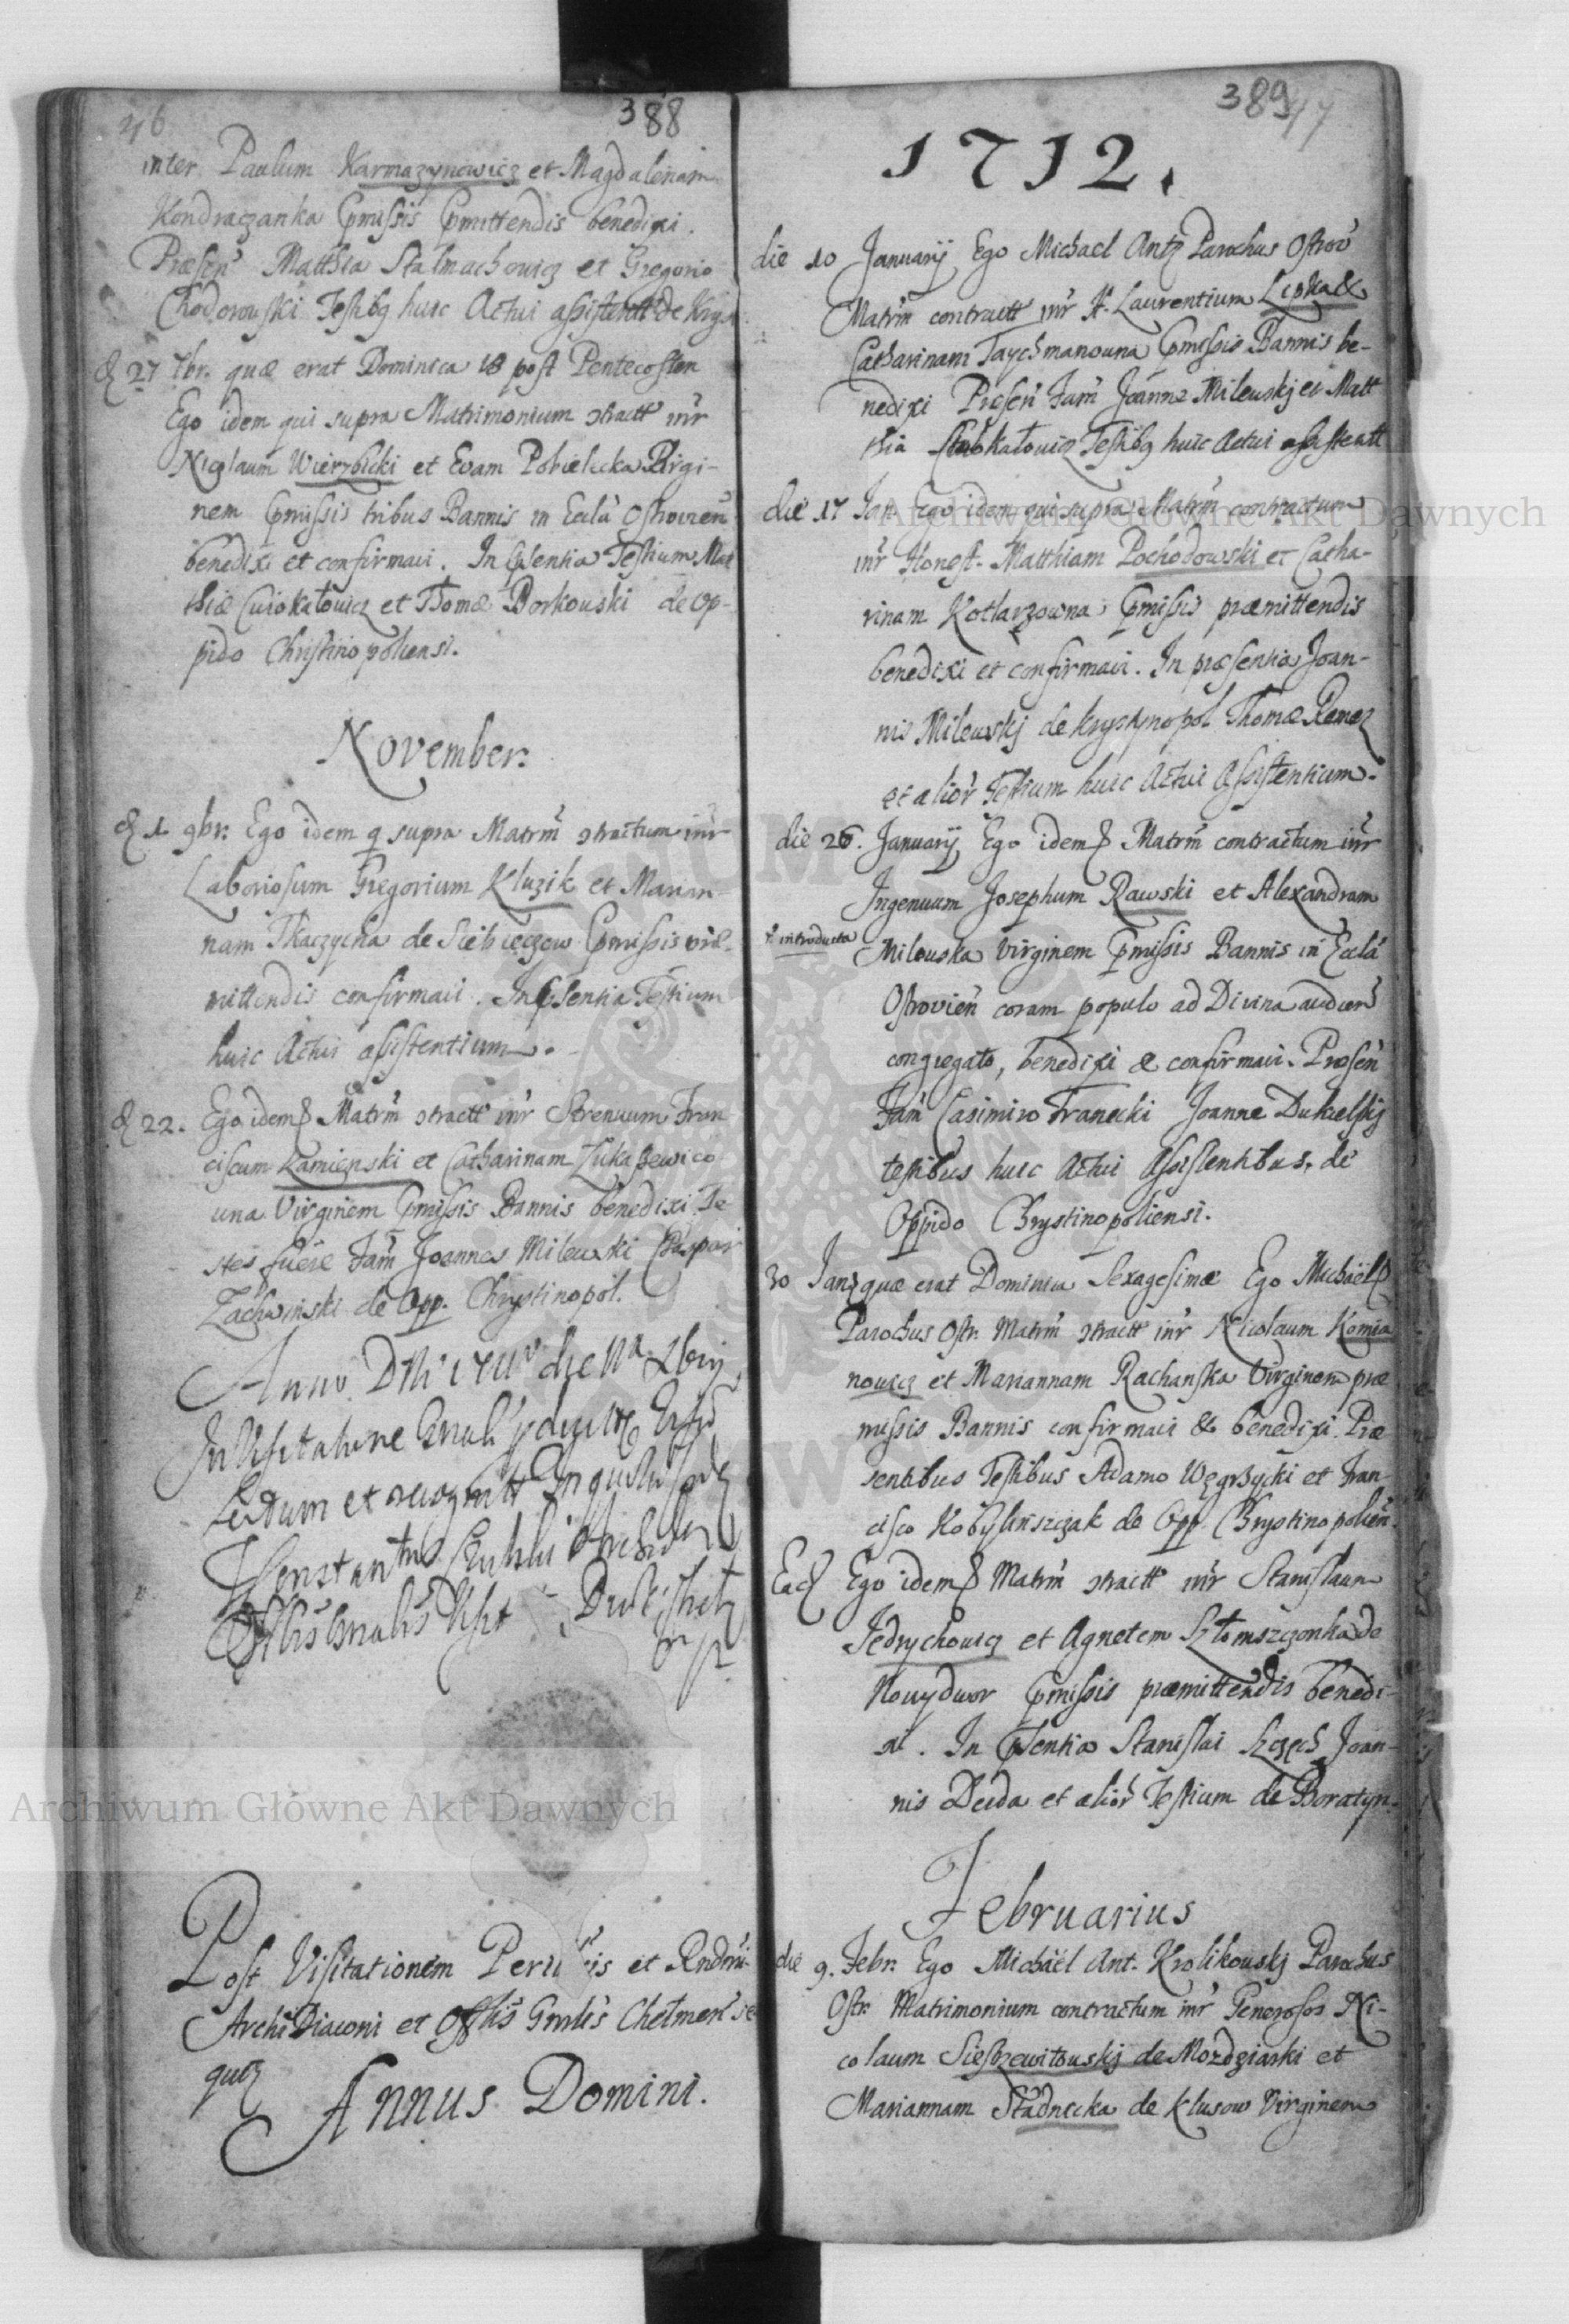 46
388
inter Paulum Karmazynowicz et Magdalenam
Kondraczanka Pmissis Pmittendis benedixi.
Præsen Matthia Stalmachowicz et Gregorio
Chodorowski Testibq huic Actui assistentt de Krys
d 27 7br. quæ erat Dominica 18 post Pentecosten
Ego idem qui supra Matrimonium stractt inr
Nicolaum Wierzbicki et Evam Pobielicka Virgi-
nem Pmissis tribus Bannis in Ecclà Ostrovien
benedixi et confirmavi. In Psentia Testium Mat
thiæ Cwiokałowicz et Thomæ Borkowski de Op-
pido Christinopoliensi.
November.
d 1 9br: Ego idem q supra Matrm stractum inr
Laboriosum Gregorium Kluzik et Marian-
nam Tkaczycha de Sciebieczow Pmissis præ-
mittendis confirmavi. In Psentia Testium
huic Actui assistentium.
d 22. Ego idem Matrm stractt inr Strenuum Fran
ciscum Kamienski et Catharinam Łukaszewico
wna Virginem Pmissis Bannis benedixi. Te
stes fuere Fam Joannes Milewski Caspar
Zachwinski de Opp. Chrystinopol.
Anno Dni 1711 die
In Visitatione Gnali
Lectum et
Post Visitationem Peril is et Rndmi
Archidiaconi et Offlis Gnrlis Chełmensis
Annus Domini.
389
47
1712.
die 10 Januarij Ego Michael Antz Parochus Ostrov
Matrm contractt inr H. Laurentium Lipka &
Catharinam Taychmanowna Pmissis Bannis be-
nedixi Præsen Fam Joanne Milewskj et Matt
hia Testibq huic Actui assistentt
die 17 Jan Ego idem qui supra Matrm contractum
inr Honest. Matthiam Pochodowski et Catha-
rinam Kotlarzowna Pmissis præmittendis
benedixi et confirmavi. In præsentia Joan-
nis Milewskj de Krystynopol Thomæ Remez
et alior Testium huic Actui Assistentium.
die 26. Januarij Ego idem Matrm contractum inr
Ingenuum Josephum Rawski et Alexandram
introducta Milewska Virginem Pmissis Bannis in Ecclâ
Ostrovien coram populo ad Divina audien
congregato, benedixi & confirmavi. Præsen
Fam Casimiro Franecki Joanne Dukielskj
testibus huic Actui Assistentibus. de
Oppido Chrystinopoliensi.
30 Janz quæ erat Dominica Sexagesimæ Ego Michaël
Parochus Ostr. Matrm stractt inr Nicolaum Komia
nowicz et Mariannam Rachanska Virginem præ
missis Bannis confirmavi & benedixi. Præ
sentibus Testibus Adamo Węgrzycki et Fran-
cisco Kobylinszczak de Opp. Chrystinopolien.
Ead Ego idem Matrm stractt inr Stanislaum
Jedrychowicz et Agnetem Szłomszczonka de
Nowydwor Pmissis præmittendis benedi-
xi. In Psentia Stanislai Szczęch Joan-
nis Deida et alior Testium de Boratyn.
Februarius
die 9. Febr. Ego Michaël Ant. Krolikowskj Parochus
Ostr. Matrimonium contractum inr Generosos Ni-
colaum Siestrzewitowskj de Mozdziarki et
Mariannam Stadnicka de Klusow Virginem
Archiwum Główne Akt Dawnych
Archiwum Główne Akt Dawnych